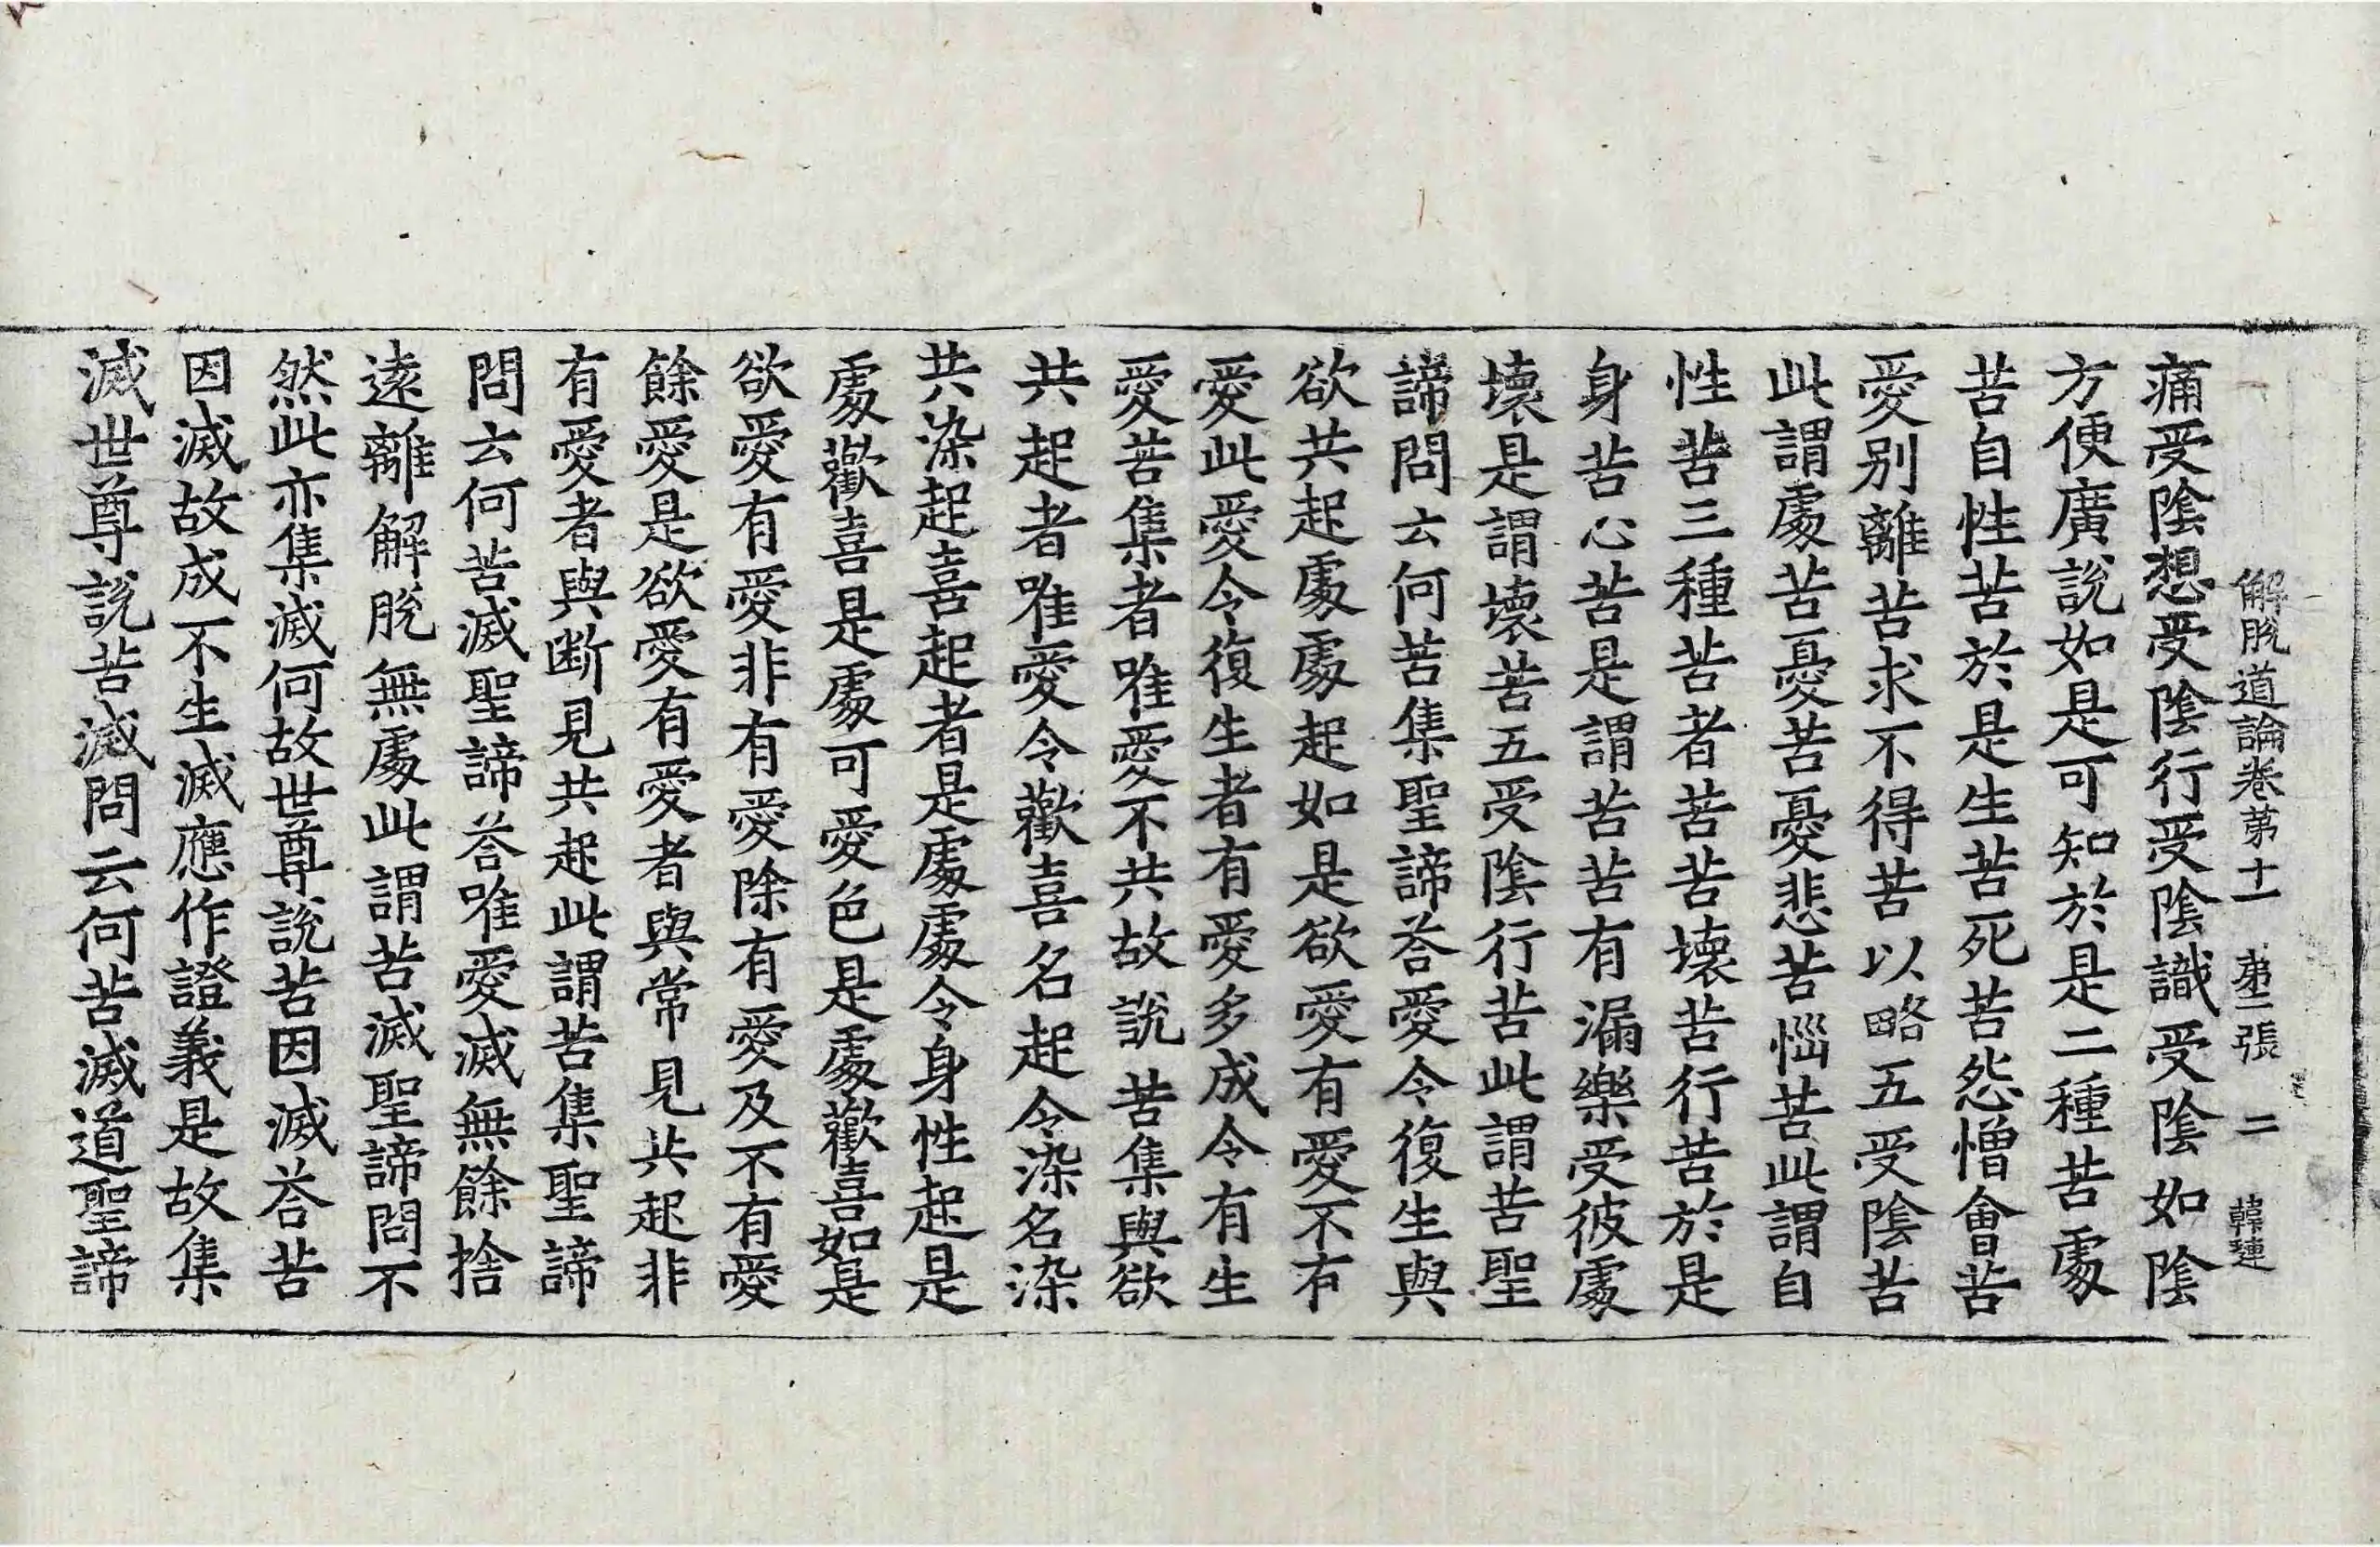 解脫道論卷苐十一 苐二張 二 韓璉
痛受陰想受陰行受陰識受陰如陰
方便廣說如是可知於是二種苦處
苦自性苦於是生苦死苦怨憎會苦
愛別離苦求不得苦以略五受陰苦
此謂處苦憂苦憂悲苦惱苦此謂自
性苦三種苦者苦苦壞苦行苦於是
身苦心苦是謂苦苦有漏樂受彼處
壞是謂壞苦五受陰行苦此謂苦聖
諦問云何苦集聖諦荅愛令復生與
欲共起處處起如是欲愛有愛不有
愛此愛令復生者有愛多成令有生
愛苦集者唯愛不共故說苦集與欲
共起者唯愛令歡喜名起令染名染
共染起喜起者是處處令身性起是
處歡喜是處可愛色是處歡喜如是
欲愛有愛非有愛除有愛及不有愛
餘愛是欲愛有愛者與常見共起非
有愛者與断見共起此謂苦集聖諦
問云何苦滅聖諦荅唯愛滅無餘捨
遠離解脫無處此謂苦滅聖諦問不
然此亦集滅何故世尊說苦因滅荅苦
因滅故成不生滅應作證義是故集
滅世尊說苦滅問云何苦滅道聖諦